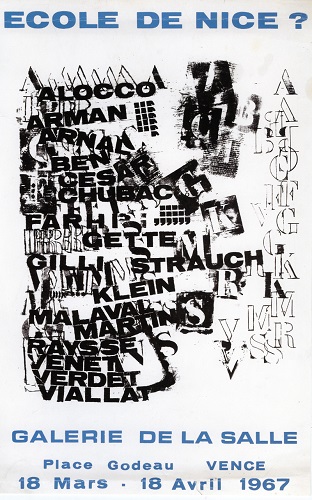 ECOLE DE NICE ?
ALOCCO
ARMAN
ARNAL
BEN
CESAR
CHUBAC
FARHI
GETTE
GILLI STRAUCH
KLEIN
MALAVAL
MARTIN
RAYSSE
VENET
VERDET
VIALLAT
GALERIE DE LA SALLE
Place Godeau VENCE
18 Mars - 18 Avril 1967